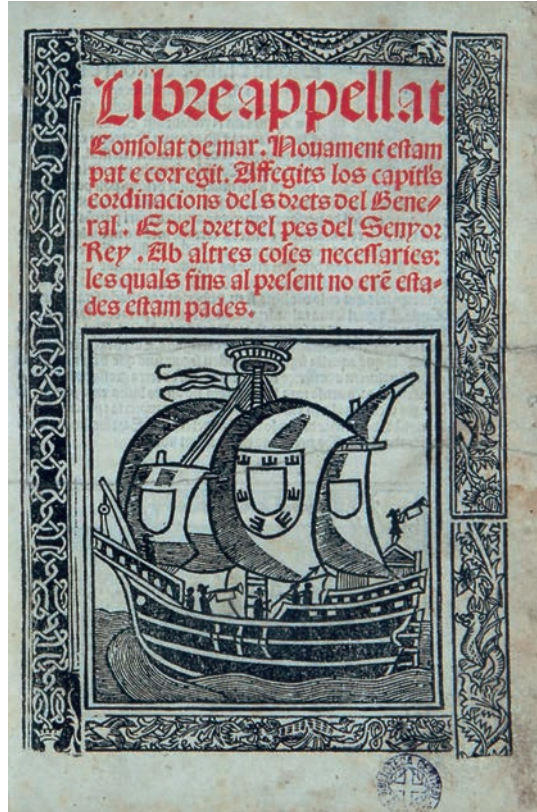 Libre appellat
Consolat de mar. Nouament estam
pat e corregit. Affegits los capitl's
e ordinacions dels drets del Gene/
ral. E del dret del pes del Senyor
Rey. Ab altres coses necessaries:
les quals fins al present no erē esta-
des estampades.